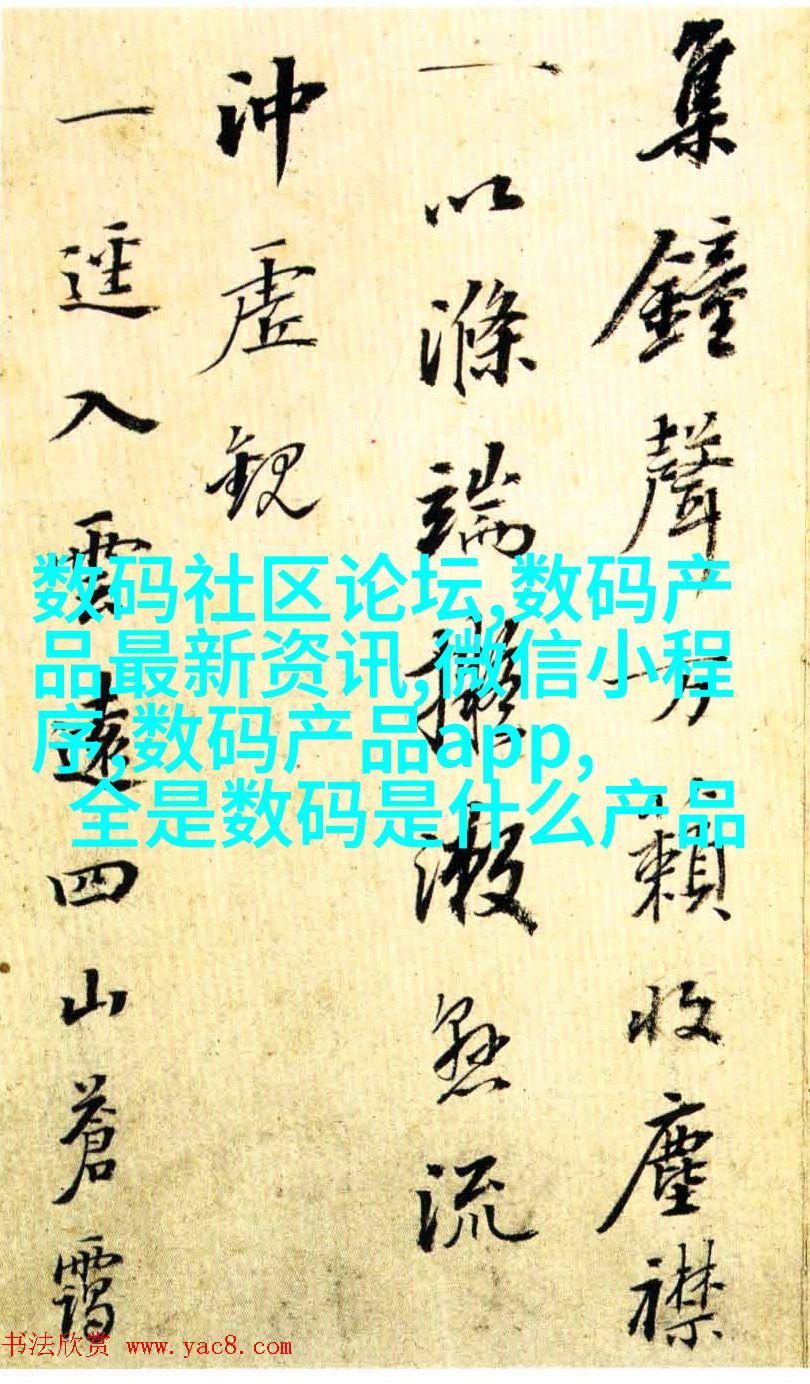 集鐘聲万籟收塵襟
一以滌端流
沖虛觀
一逕入雲遠四山蒼靄
数码社区论坛,数码产
品最新资讯,微信小程
序,数码产品app,
全是数码是什么产品
书法欣赏 www.yac8.com